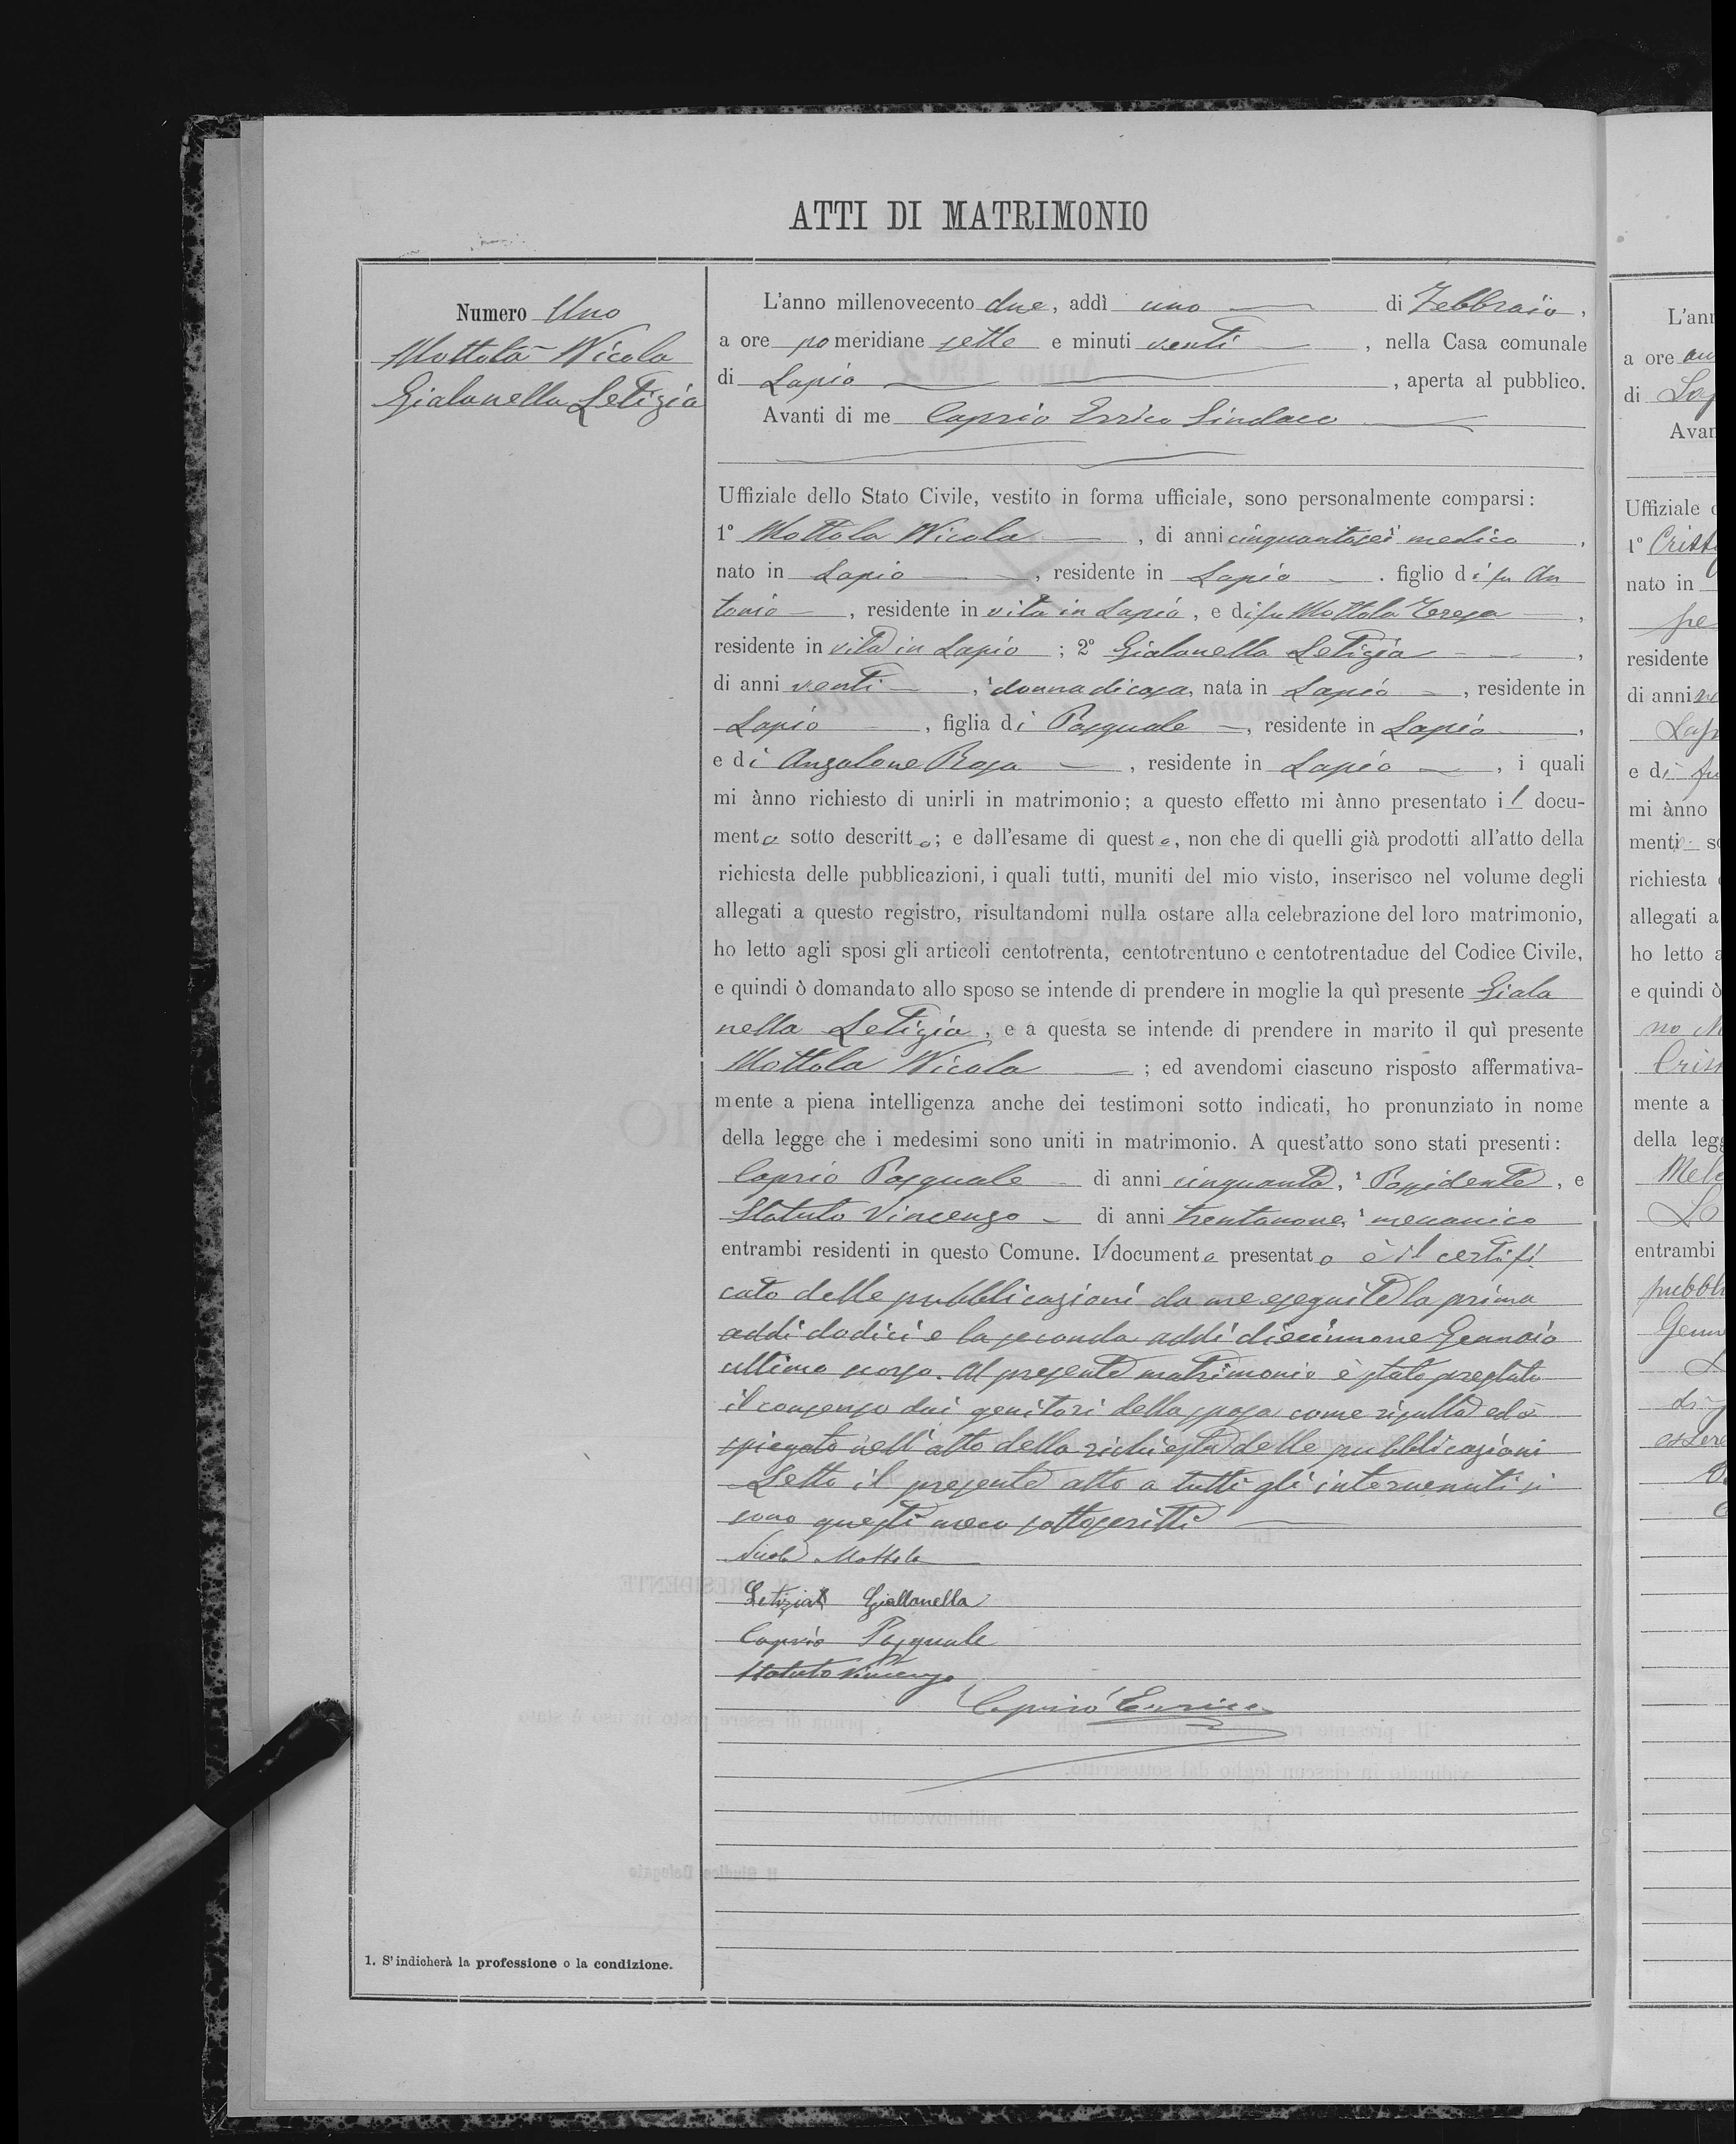 ATTI DI MATRIMONIO
Numero Uno
Mottola Nicola
Gialanella Letizia
L'anno millenovecento due, addì uno di Febbraio,
a ore pomeridiane sette e minuti venti, nella Casa comunale
di Lapio, aperta al pubblico.
Avanti di me Caprio Errico Sindaco
Uffiziale dello Stato Civile, vestito in forma ufficiale, sono personalmente comparsi:
1° Mottola Nicola, di anni cinquantasei medico,
nato in Lapio, residente in Lapio, figlio di fu An
tonio, residente in vita in Lapio, e di fu Mottola Teresa,
residente in vita in Lapio; 2° Gialanella Letizia,
di anni venti, ¹ donna di casa, nata in Lapio, residente in
Lapio, figlia di Pasquale, residente in Lapio,
e di Anzalone Rosa, residente in Lapio, i quali
mi ànno richiesto di unirli in matrimonio; a questo effetto mi ànno presentato il docu-
mento sotto descritto; e dall'esame di questo, non che di quelli già prodotti all'atto della
richiesta delle pubblicazioni, i quali tutti, muniti del mio visto, inserisco nel volume degli
allegati a questo registro, risultandomi nulla ostare alla celebrazione del loro matrimonio,
ho letto agli sposi gli articoli centotrenta, centotrentuno e centotrentadue del Codice Civile,
e quindi ò domandato allo sposo se intende di prendere in moglie la quì presente Giala
nella Letizia, e a questa se intende di prendere in marito il quì presente
Mottola Nicola; ed avendomi ciascuno risposto affermativa-
mente a piena intelligenza anche dei testimoni sotto indicati, ho pronunziato in nome
della legge che i medesimi sono uniti in matrimonio. A quest'atto sono stati presenti:
Caprio Pasquale di anni cinquanta, ¹ Possidente, e
Statuto Vincenzo di anni trentanove, ¹ meccanico
entrambi residenti in questo Comune. Il documento presentato è il certifi
cato delle pubblicazioni da me eseguite la prima
addì dodici e la seconda addì diciannove Gennaio
ultimo scorso. Al presente matrimonio è stato prestato
il consenso dai genitori della sposa come risulta ed è
spiegato nell'atto della richiesta delle pubblicazioni
Letto il presente atto a tutti gli intervenuti si
sono questi meco sottoscritti
Nicola Mottola
Letizia Giallanella
Caprio Pasquale
Statuto Vincenzo
Caprio Errico
1. S'indicherà la professione o la condizione.
L'an
a ore an
di Lap
Avan
Uffiziale d
1° Crist
nato in
residente
di anni
Lap
e di fu
mi ànno
menti so
richiesta
allegati a
ho letto a
e quindi ò
no M
Cris
mente a
della legg
Mele
Lo
entrambi
pubbli
Genn
di
essere